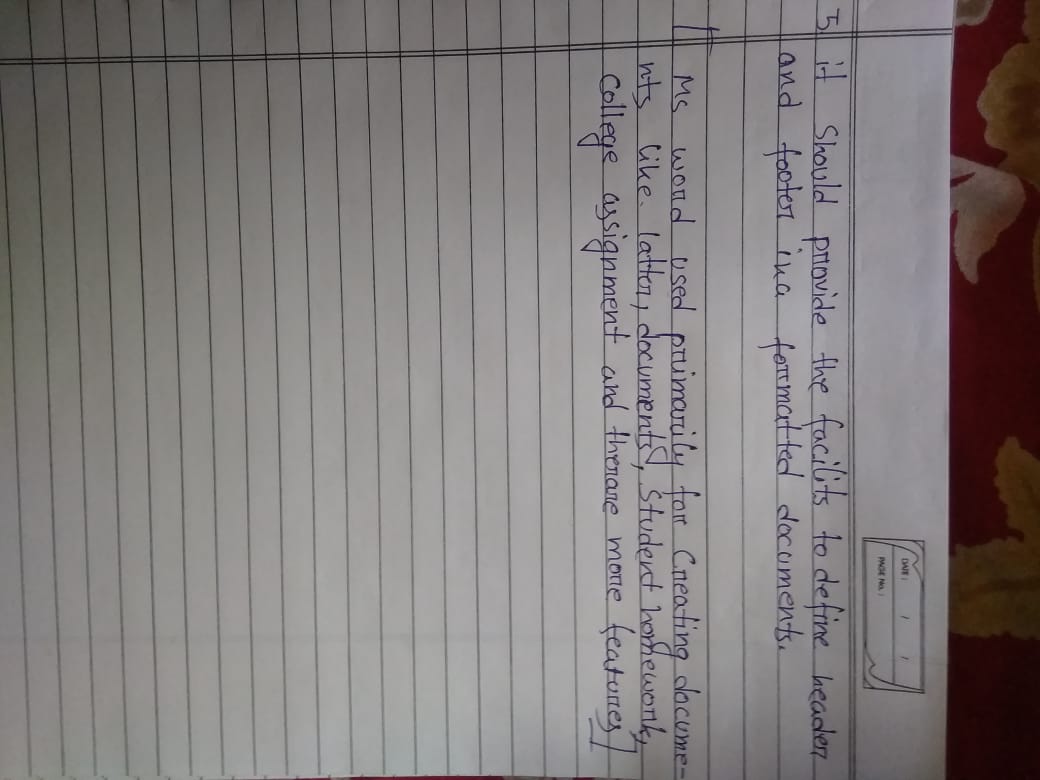 DATE: / /
PAGE NO.:
5 it should provide the facilits to define header
and footer in a formatted documents.
[ Ms word used primarily for Creating docume-
nts like. latter, documents, Student homework,
College assignment and therare more features]